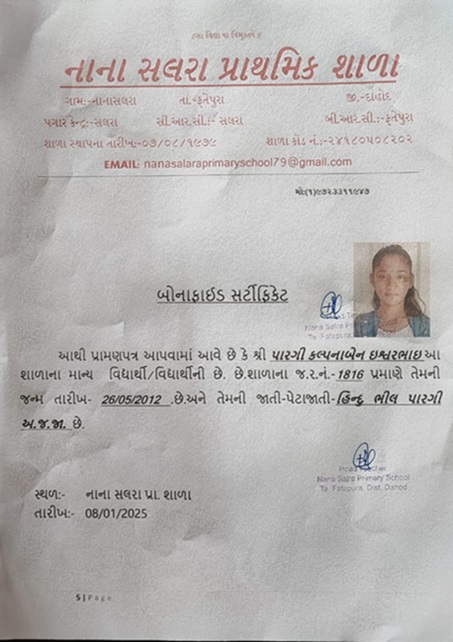 ॥સા વિદ્યા યા વિમુક્તયે॥
નાના સલરા પ્રાથમિક શાળા
ગામ:-નાનાસલરા તા.-ફતેપુરા જી.-દાહોદ
પગાર કેન્દ્ર:-સલરા સી.આર.સી.:- સલરા બી.આર.સી.:-ફતેપુરા
શાળા સ્થાપના તારીખ:-૦૭/૦૮/૧૯૭૯ શાળા કોડ નં.:-૨૪૧૮૦૫૦૮૨૦૨
EMAIL: nanasalaraprimaryschool79@gmail.com
મો:(૧)૯૭૨૩૩૧૧૯૪૭
બોનાફાઈડ સર્ટીફિકેટ
Nana Salra Pr
Ta. Fatepura
આથી પ્રામણપત્ર આપવામાં આવે છે કે શ્રી પારગી કલ્પનાબેન ઇશ્વરભાઇ આ
શાળાના માન્ય વિદ્યાર્થી/વિદ્યાર્થીની છે. છે.શાળાના જ.ર.નં.-1816 પ્રમાણે તેમની
જન્મ તારીખ- 26/05/2012 .છે.અને તેમની જાતી-પેટાજાતી-હિન્દુ ભીલ પારગી
અ.જ.જા. છે.
Head Teacher
Nana Salra Primary School
Ta. Fatepura, Dist. Dahod
સ્થળ:- નાના સલરા પ્રા. શાળા
તારીખ:- 08/01/2025
5 | Page